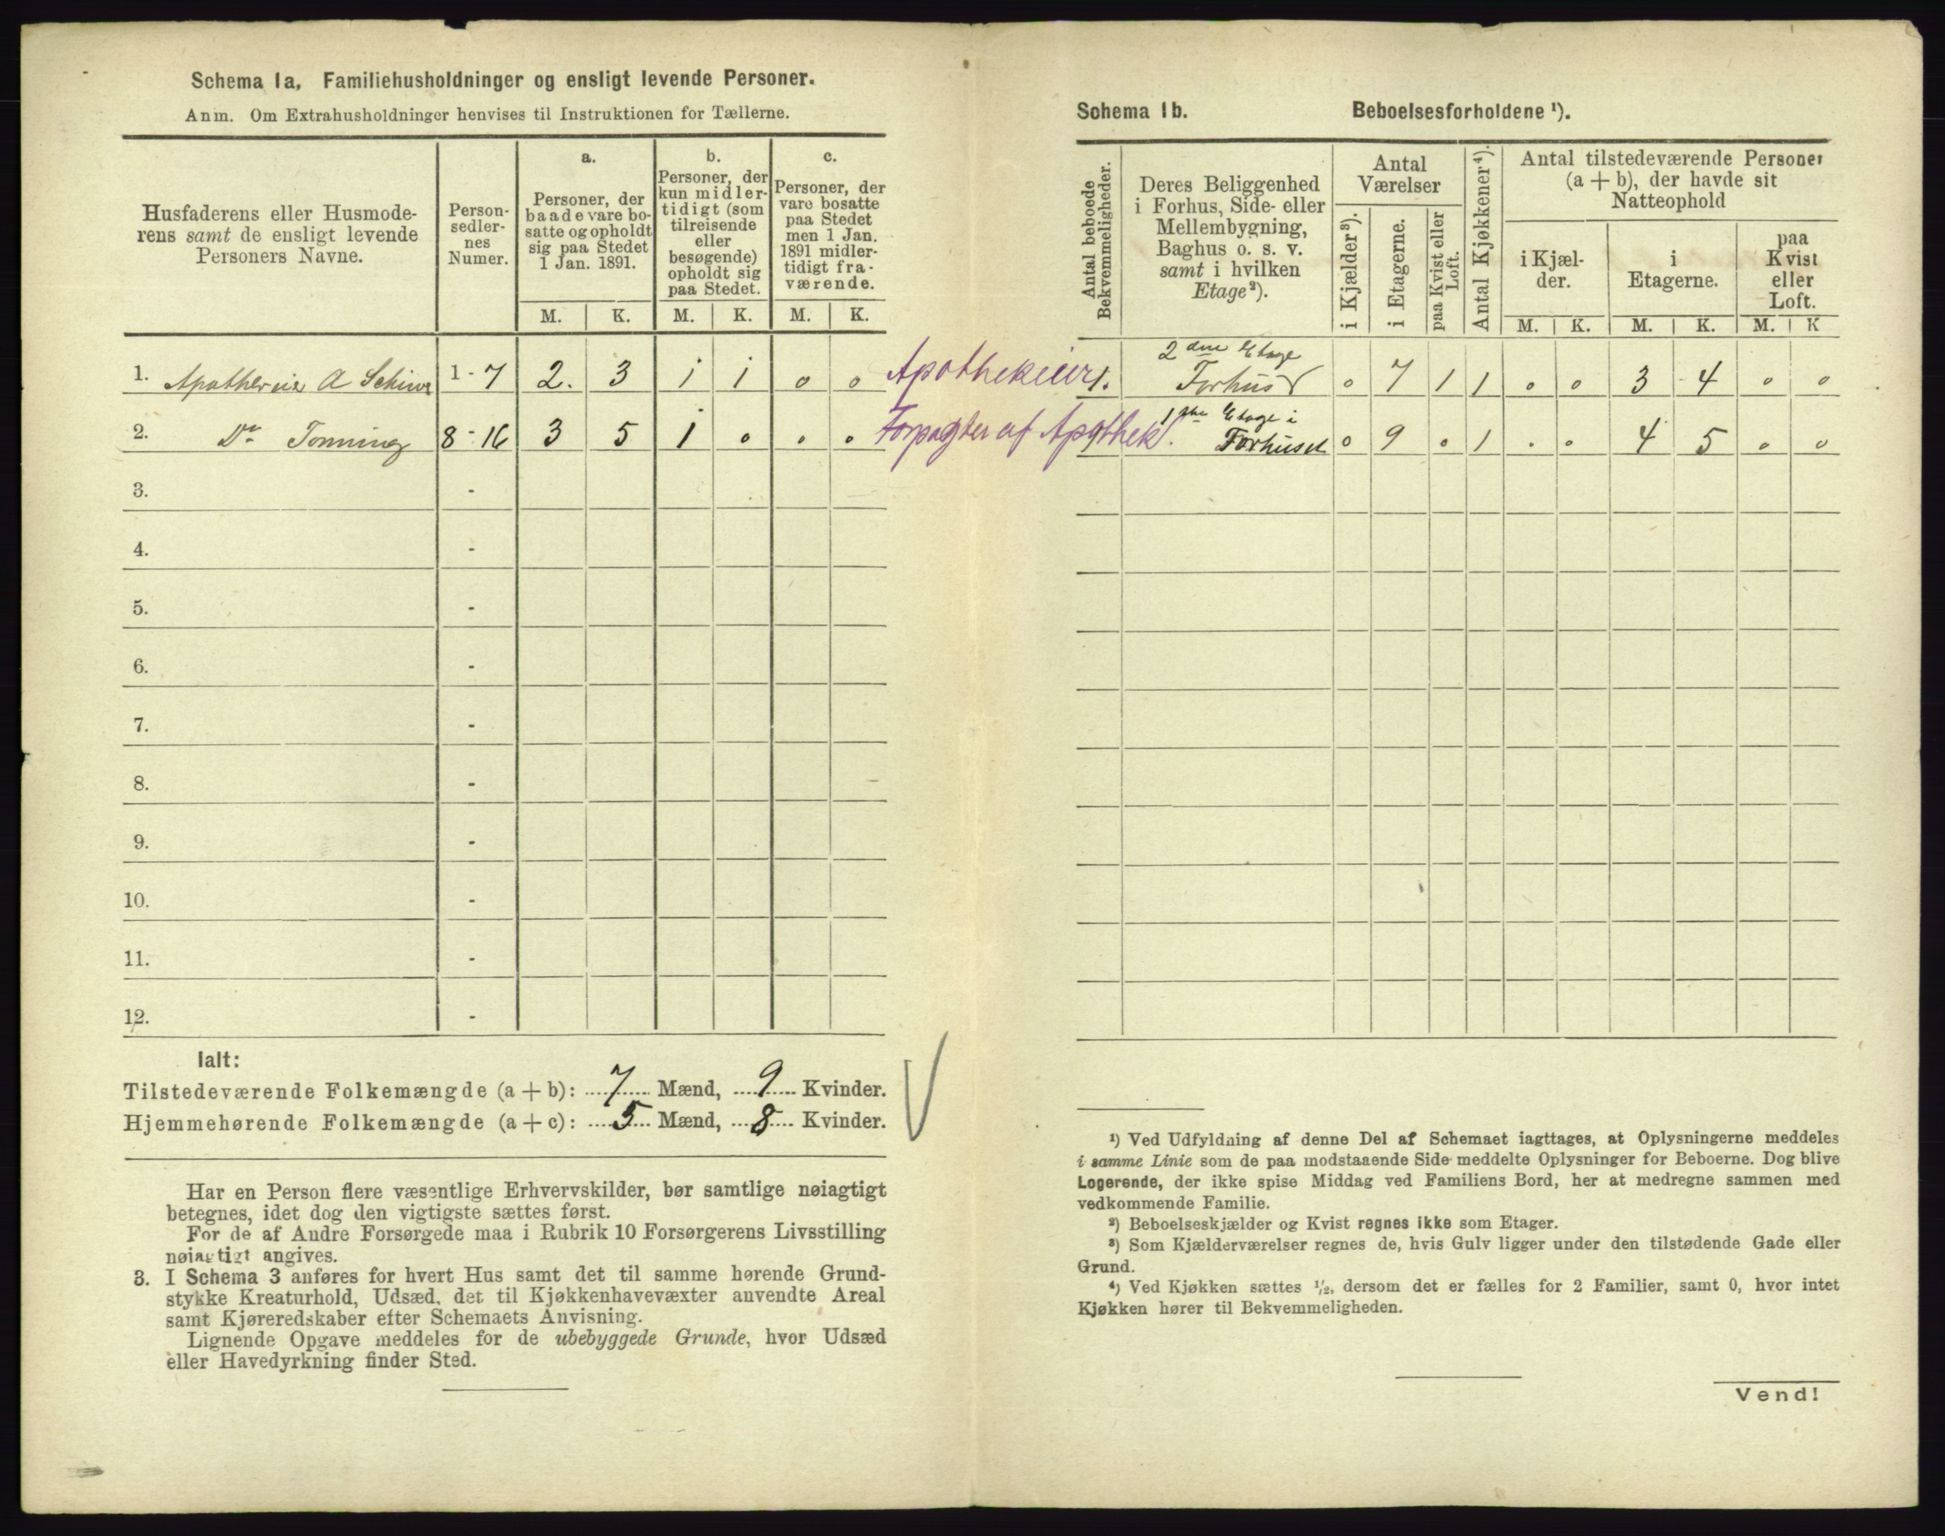 Schema 1a, Familiehusholdninger og ensligt levende Personer.
Anm. Om Extrahusholdninger henvises til Instruktionen for Tællerne.
Husfaderens eller Husmode-
rens samt de ensligt levende
Personers Navne.
Person-
sedler-
nes
Numer.
a.
Personer, der
baade vare bo-
satte og opholdt
sig paa Stedet
1 Jan. 1891.
b.
Personer, der
kun midler-
tidigt (som
tilreisende
eller
besøgende)
opholdt sig
paa Stedet.
c.
Personer, der
vare bosatte
paa Stedet
men 1 Jan.
1891 midler-
tidigt fra-
værende.
M. K. M. K. M. K.
1. A 1 - 7 2. 3 1 1 0 0
2. Dr Tonning 8 - 16 3 5 1 0 0 0
3. -
4. -
5. -
6. -
7. -
8. -
9. -
10. -
11. -
12. -
Ialt:
Tilstedeværende Folkemængde (a + b): 7 Mænd, 9 Kvinder.
Hjemmehørende Folkemængde (a + c): 5 Mænd, 8 Kvinder.
Har en Person flere væsentlige Erhvervskilder, bør samtlige nøiagtigt
betegnes, idet dog den vigtigste sættes først.
For de af Andre Forsørgede maa i Rubrik 10 Forsørgerens Livsstilling
nøiagtigt angives.
3. I Schema 3 anføres for hvert Hus samt det til samme hørende Grund-
stykke Kreaturhold, Udsæd, det til Kjøkkenhavevæxter anvendte Areal
samt Kjøreredskaber efter Schemaets Anvisning.
Lignende Opgave meddeles for de ubebyggede Grunde, hvor Udsæd
eller Havedyrkning finder Sted.
Schema 1b. Beboelsesforholdene ¹).
Antal beboede
Bekvemmeligheder.
Deres Beliggenhed
i Forhus, Side- eller
Mellembygning,
Baghus o. s. v.
samt i hvilken
Etage²).
Antal
Værelser
i Kjælder³).
i Etagerne.
paa Kvist eller
Loft.
Antal Kjøkkener⁴).
Antal tilstedeværende Personer
(a + b), der havde sit
Natteophold
i Kjæl-
der.
i
Etagerne.
paa
Kvist
eller
Loft.
M. K. M. K. M. K
2den Etage
Apothekeier 1. Forhus 0 7 1 1 0 0 3 4 0 0
1ste Etage i
Forpagter af Apothek. Forhuset 0 9 0 1 0 0 4 5 0 0
¹) Ved Udfyldning af denne Del af Schemaet iagttages, at Oplysningerne meddeles
i samme Linie som de paa modstaaende Side meddelte Oplysninger for Beboerne. Dog blive
Logerende, der ikke spise Middag ved Familiens Bord, her at medregne sammen med
vedkommende Familie.
²) Beboelseskjælder og Kvist regnes ikke som Etager.
³) Som Kjælderværelser regnes de, hvis Gulv ligger under den tilstødende Gade eller
Grund.
⁴) Ved Kjøkken sættes ½, dersom det er fælles for 2 Familier, samt 0, hvor intet
Kjøkken hører til Bekvemmeligheden.
Vend!